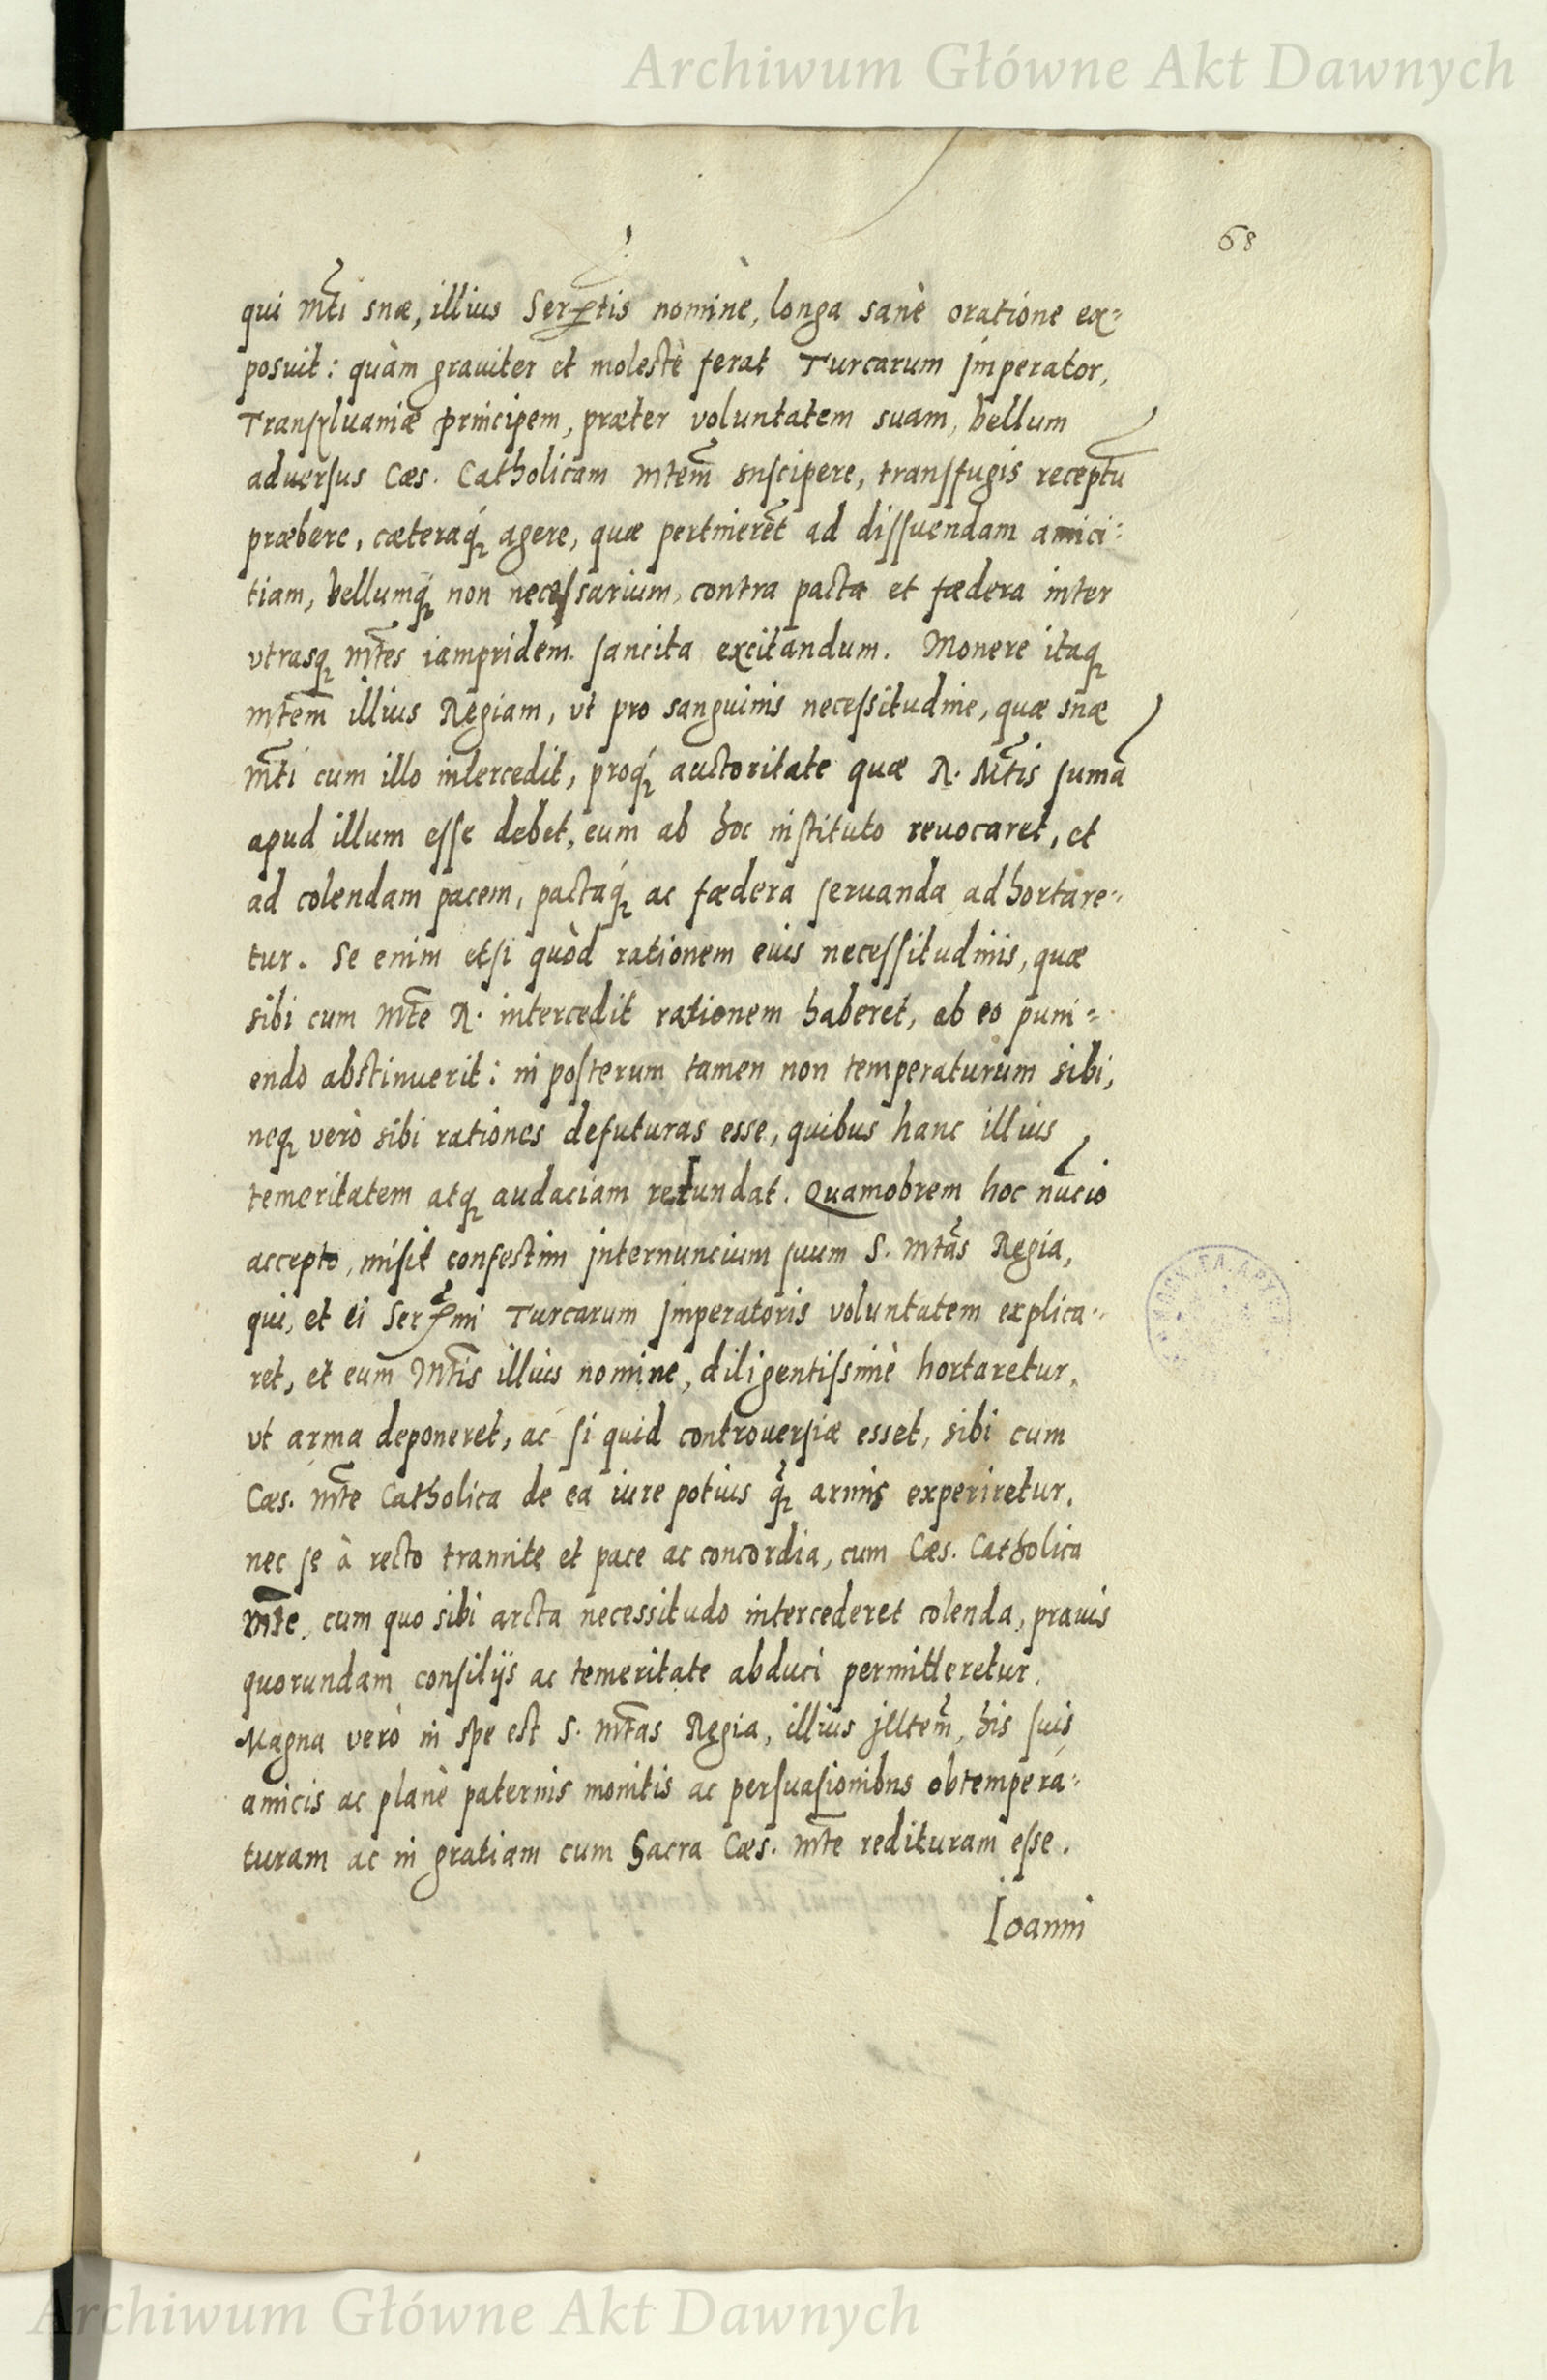 Archiwum Główne Akt Dawnych
68
qui Mti suæ, illius Sertis nomine, longa sanè oratione ex=
posuit: quàm grauiter et molestè ferat Turcarum Imperator,
Transyluaniæ principem, præter voluntatem suam, bellum
aduersus Cæs. Catholicam Mtem suscipere, transfugis receptũ
præbere, cæteraq́ agere, quæ pertinerẽt ad dissuendam amici=
tiam, bellumq́ non necessarium, contra pacta et fædera inter
vtrasq Mtes iampridem sancita excitandum. Monere itaq
Mtem illius Regiam, vt pro sanguinis necessitudine, quæ suæ
Mti cum illo intercedit, proq́ auctoritate quæ R. Mtis suma
apud illum esse debet, eum ab hoc instituto reuocaret, et
ad colendam pacem, pactaq́ ac fædera seruanda adhortare=
tur. Se enim etsi quòd rationem euis necessitudinis, quæ
sibi cum Mte R. intercedit rationem haberet, ab eo puni=
endo abstinuerit: in posterum tamen non temperaturum sibi,
neq verò sibi rationes defuturas esse, quibus hanc illius
temeritatem atq audaciam retundat. Quamobrem hoc nũcio
accepto, misit confestim internuncium suum S. Mtas Regia,
qui, et ei Sermi Turcarum Imperatoris voluntatem explica=
ret, et eum Mtis illius nomine, diligentissimè hortaretur,
vt arma deponeret, ac si quid controuersiæ esset, sibi cum
Cæs. Mte Catholica de ea iure potius q̃ armis experiretur,
nec se à recto tramite et pace ac concordia, cum Cæs. Catholica
Mte, cum quo sibi arcta necessitudo intercederet colenda, prauis
quorundam consilijs ac temeritate abduci permitteretur.
Magna verò in spe est S. Mtas Regia, illius Illtem, his suis
amicis ac planè paternis monitis ac persuasionibus obtempera=
turam ac in gratiam cum Sacra Cæs. Mte redituram esse.
Ioanni
Archiwum Główne Akt Dawnych